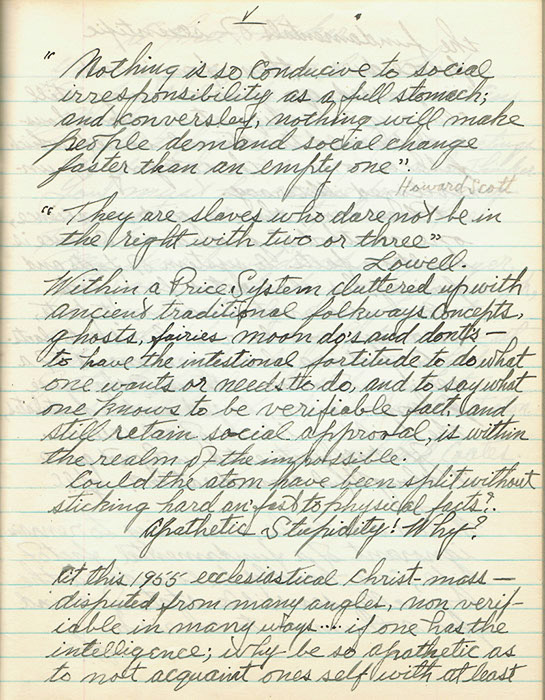 V
" Nothing is so conducive to social
irresponsibility as a full stomach;
and conversley, nothing will make
people demand social change
faster than an empty one".
Howard Scott
" They are slaves who dare not be in
the right with two or three"
Lowell.
Within a Price System cluttered up with
ancient traditional folkways concepts,
ghosts, fairies moon do's and dont's —
to have the intestional fortitude to do what
one wants or needs to do, and to say what
one knows to be verifiable fact, and
still retain social approval, is within
the realm of the impossible.
Could the atom have been split without
sticking hard an fast to physical facts?.
Apathetic Stupidity! Why?
At this 1955 ecclesiastical Christ-mass —
disputed from many angles, non verif-
iable in many ways.... if one has the
intelligence; why be so apathetic as
to not acquaint ones self with at least